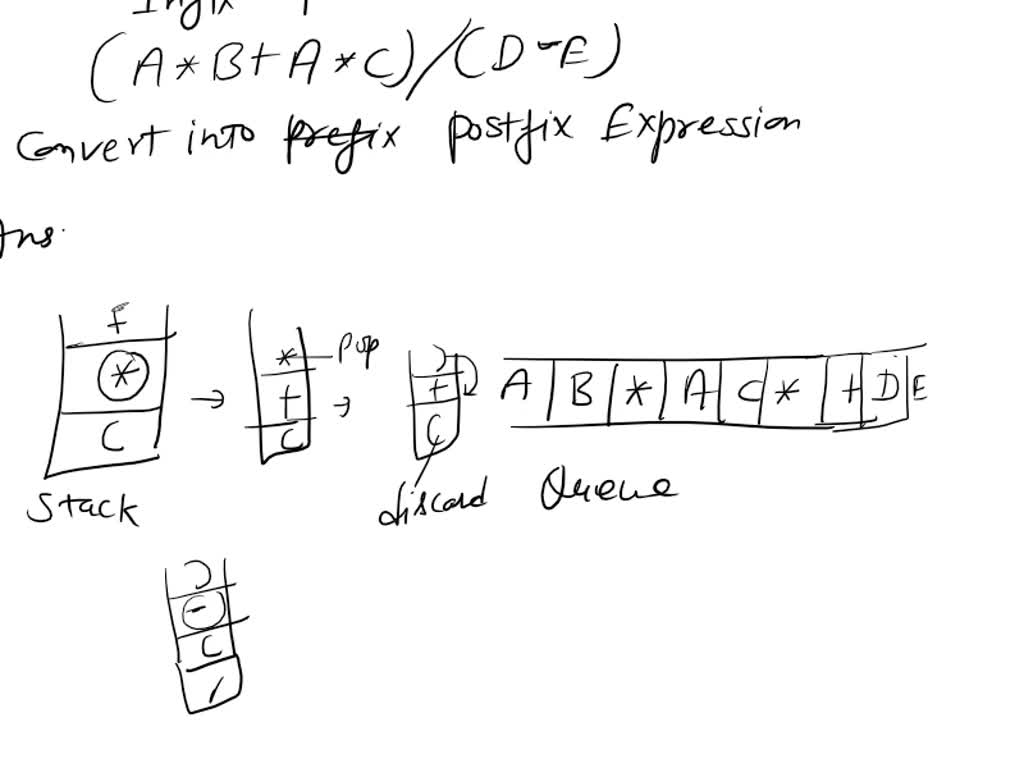 Infix
(A*B+A*C)/(D-E)
Convert into prefix postfix Expression
Ans.
+
*
(
Stack
→
* Pop
+
(
→
)
+
(
discard
A B * A C * + D E
Queue
)
-
(
/